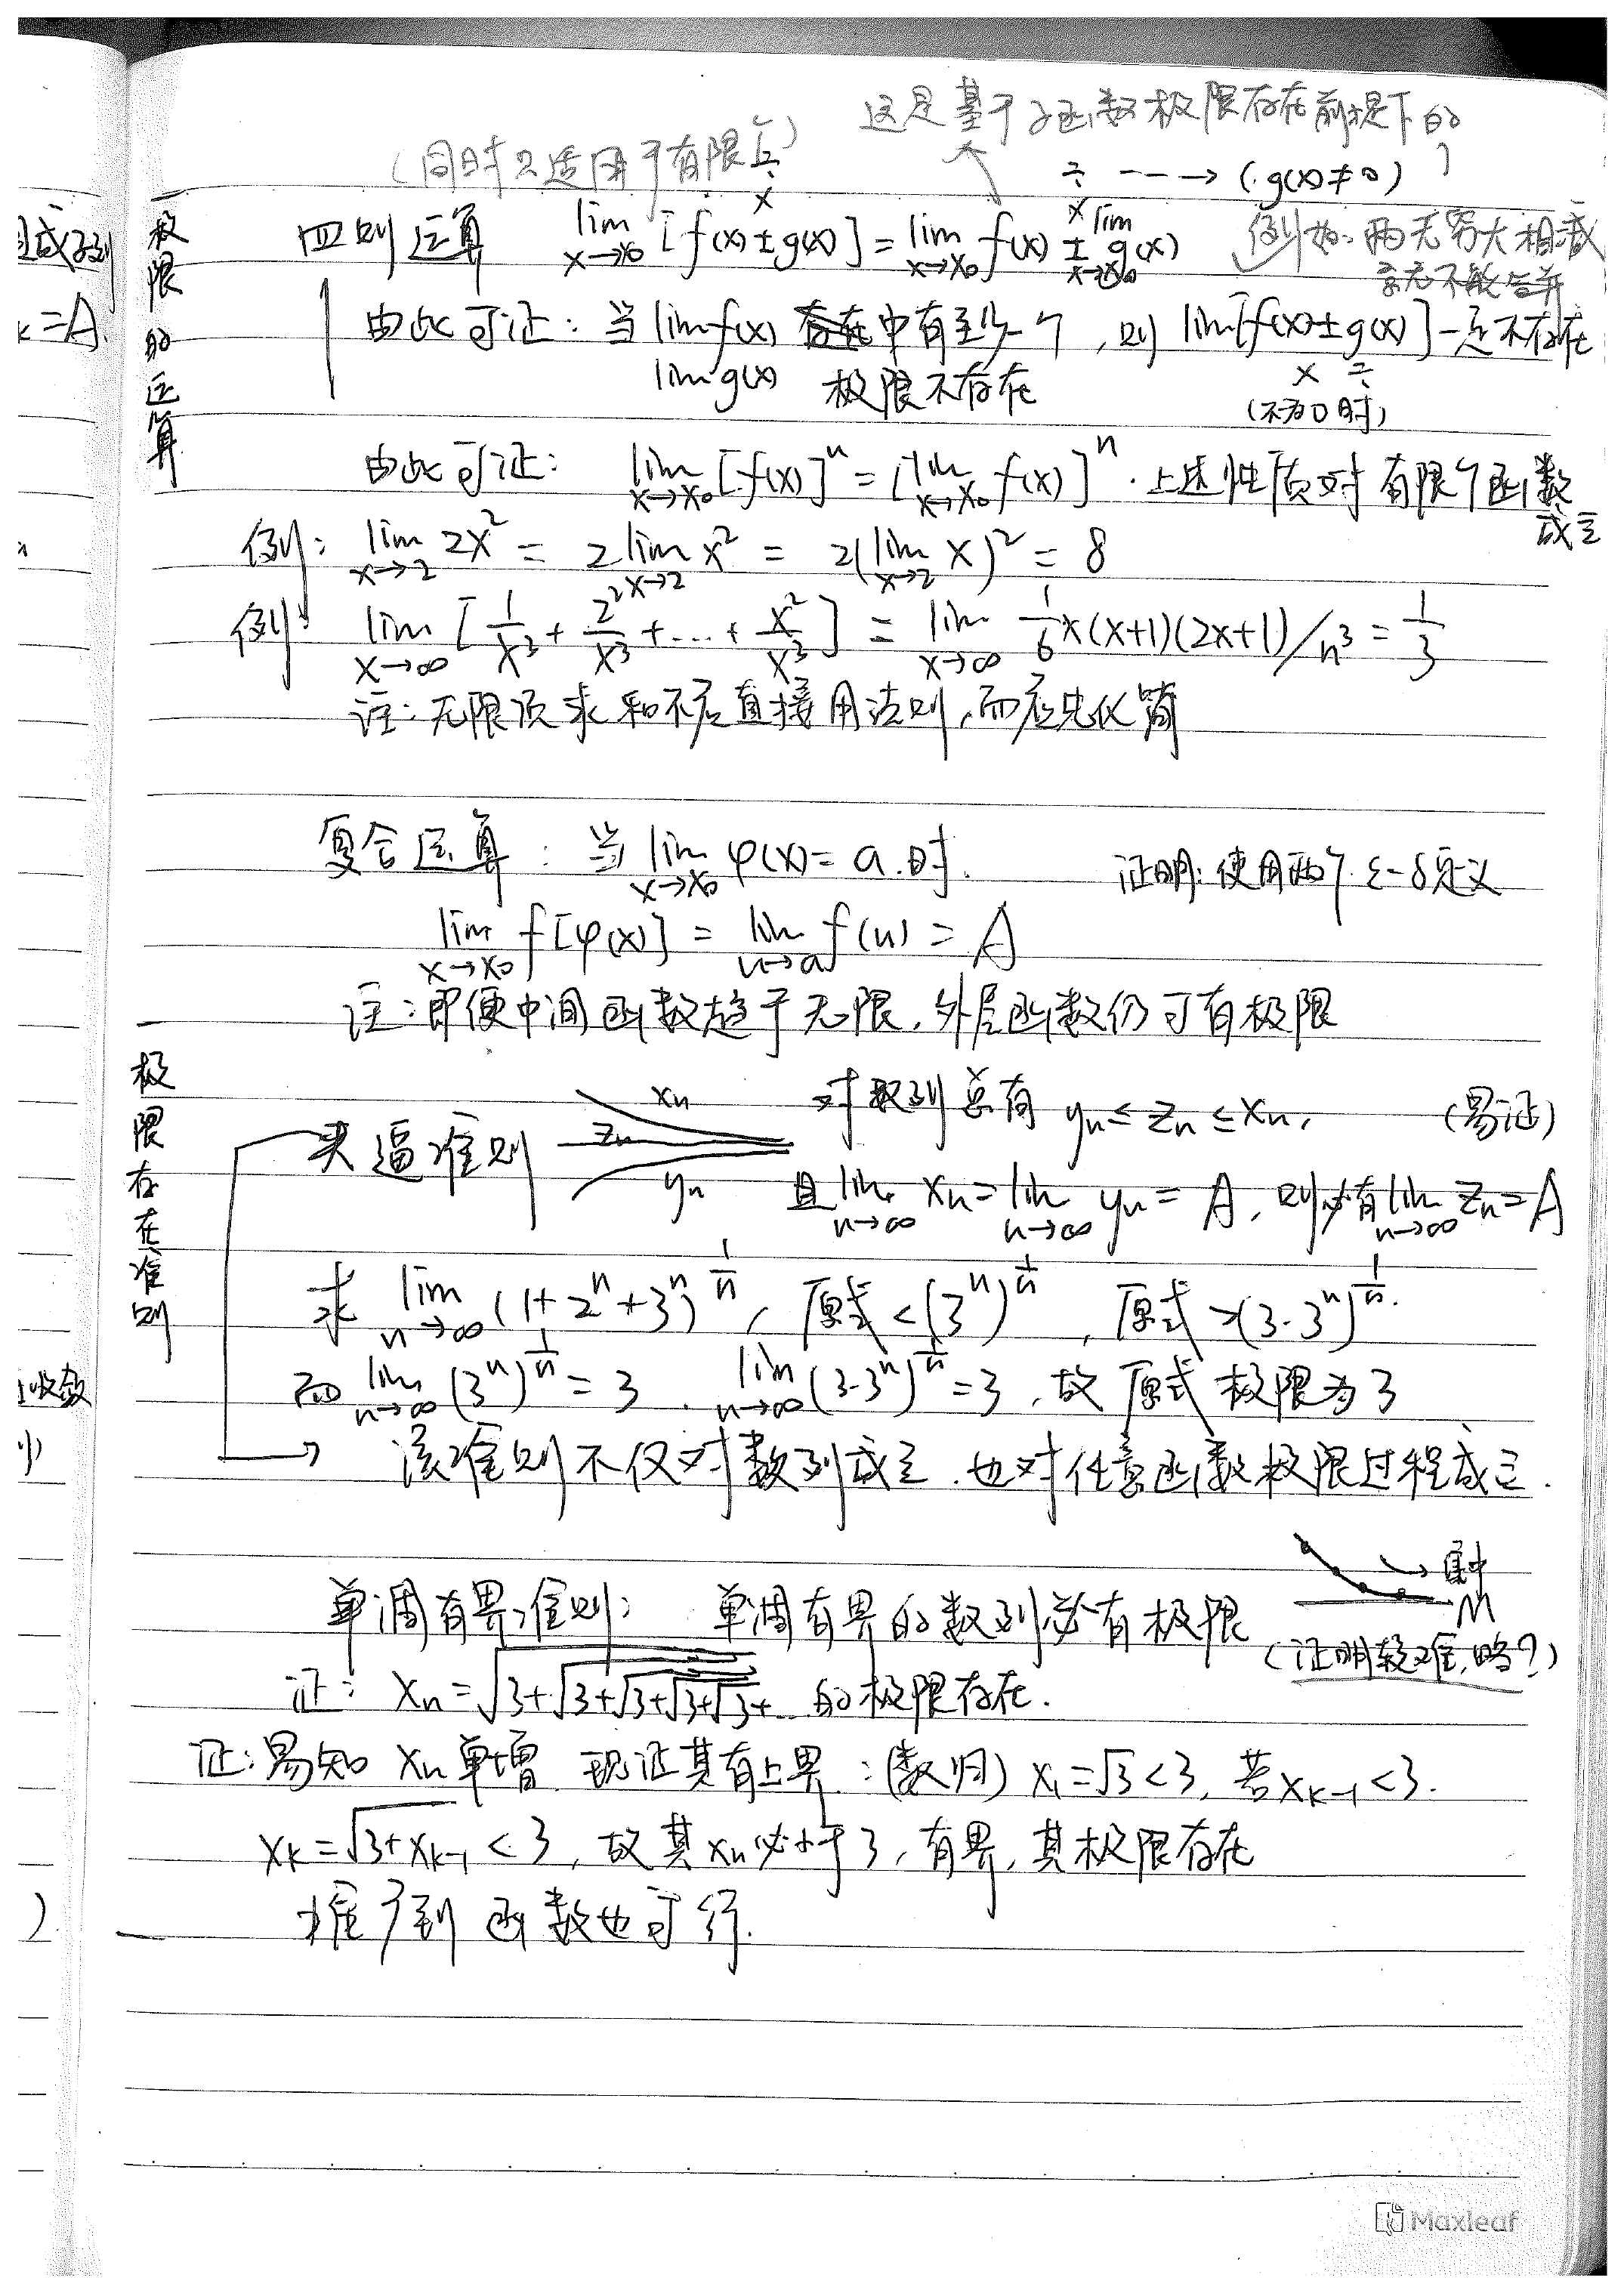 这是基于子函数极限存在前提下的
(同时只适用于有限个)
÷ ---→ (g(x)≠0)
极限的运算
四则运算 lim x→x₀ [f(x)±g(x)] = lim x→x₀ f(x) ± lim x→x₀ g(x)
× ÷
×
例如:两无穷大相减
由此可证:当 lim f(x) 中有至少一个,则 lim[f(x)±g(x)]一定不存在
lim g(x) 极限不存在
× ÷
(不为0时)
由此可证: lim x→x₀ [f(x)]ⁿ = [lim x→x₀ f(x)]ⁿ. 上述性质对有限个函数
成立
例: lim x→2 2x² = 2 lim x→2 x² = 2(lim x→2 x)² = 8
例: lim x→∞ [1/x³ + 2²/x³ + ... + x²/x³] = lim x→∞ 1/6 x(x+1)(2x+1)/n³ = 1/3
注:无限项求和不应直接用法则,而应先化简
复合运算:当 lim x→x₀ φ(x) = a 时. 证明:使用两个 ε-δ定义
lim x→x₀ f[φ(x)] = lim u→a f(u) = A
注:即便中间函数趋于无限,外层函数仍可有极限
极限存在准则
夹逼准则 xₙ zₙ yₙ 对数列总有 yₙ ≤ zₙ ≤ xₙ, (易证)
且 lim n→∞ xₙ = lim n→∞ yₙ = A, 则必有 lim n→∞ zₙ = A
求 lim n→∞ (1+2ⁿ+3ⁿ)^(1/n), 原式 < (3ⁿ)^(1/n), 原式 > (3·3ⁿ)^(1/n).
而 lim n→∞ (3ⁿ)^(1/n) = 3. lim n→∞ (3·3ⁿ)^(1/n) = 3, 故原式极限为3
→ 该准则不仅对数列成立.也对任意函数极限过程成立.
→ 集中
M
单调有界准则: 单调有界的数列必有极限
(证明较难,略?)
证: xₙ = √3+√3+√3+√3+√3+... 的极限存在.
证:易知 xₙ 单增 现证其有上界:(数归) x₁=√3<3, 若xₖ₋₁<3.
xₖ=√3+xₖ₋₁ <3, 故其xₙ必小于3,有界,其极限存在
推广到函数也可行.
且或子列
k=A.
收敛
Maxleaf